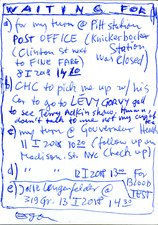 WAITING FOR
a) for my turn @ Pitt station
POST OFFICE (Knickerbocker
(Clinton St went Station
to FIVE FARE) was closed)
8 I 2018 1420
b) CHC to pick me up w/ his
car to go to LEVY GORVY gall
to see Terry Adkin show. Hmmm
don't talk to me not my cup of tea
c) my turn @ Gouverneur Health
11 I 2018 1020 (follow up on
Madison St. NYC Check up)
d) " " 12 I 2018 1300 FOR BLOOD TEST
e) @ 319 Gr. 13 I 2018 1430